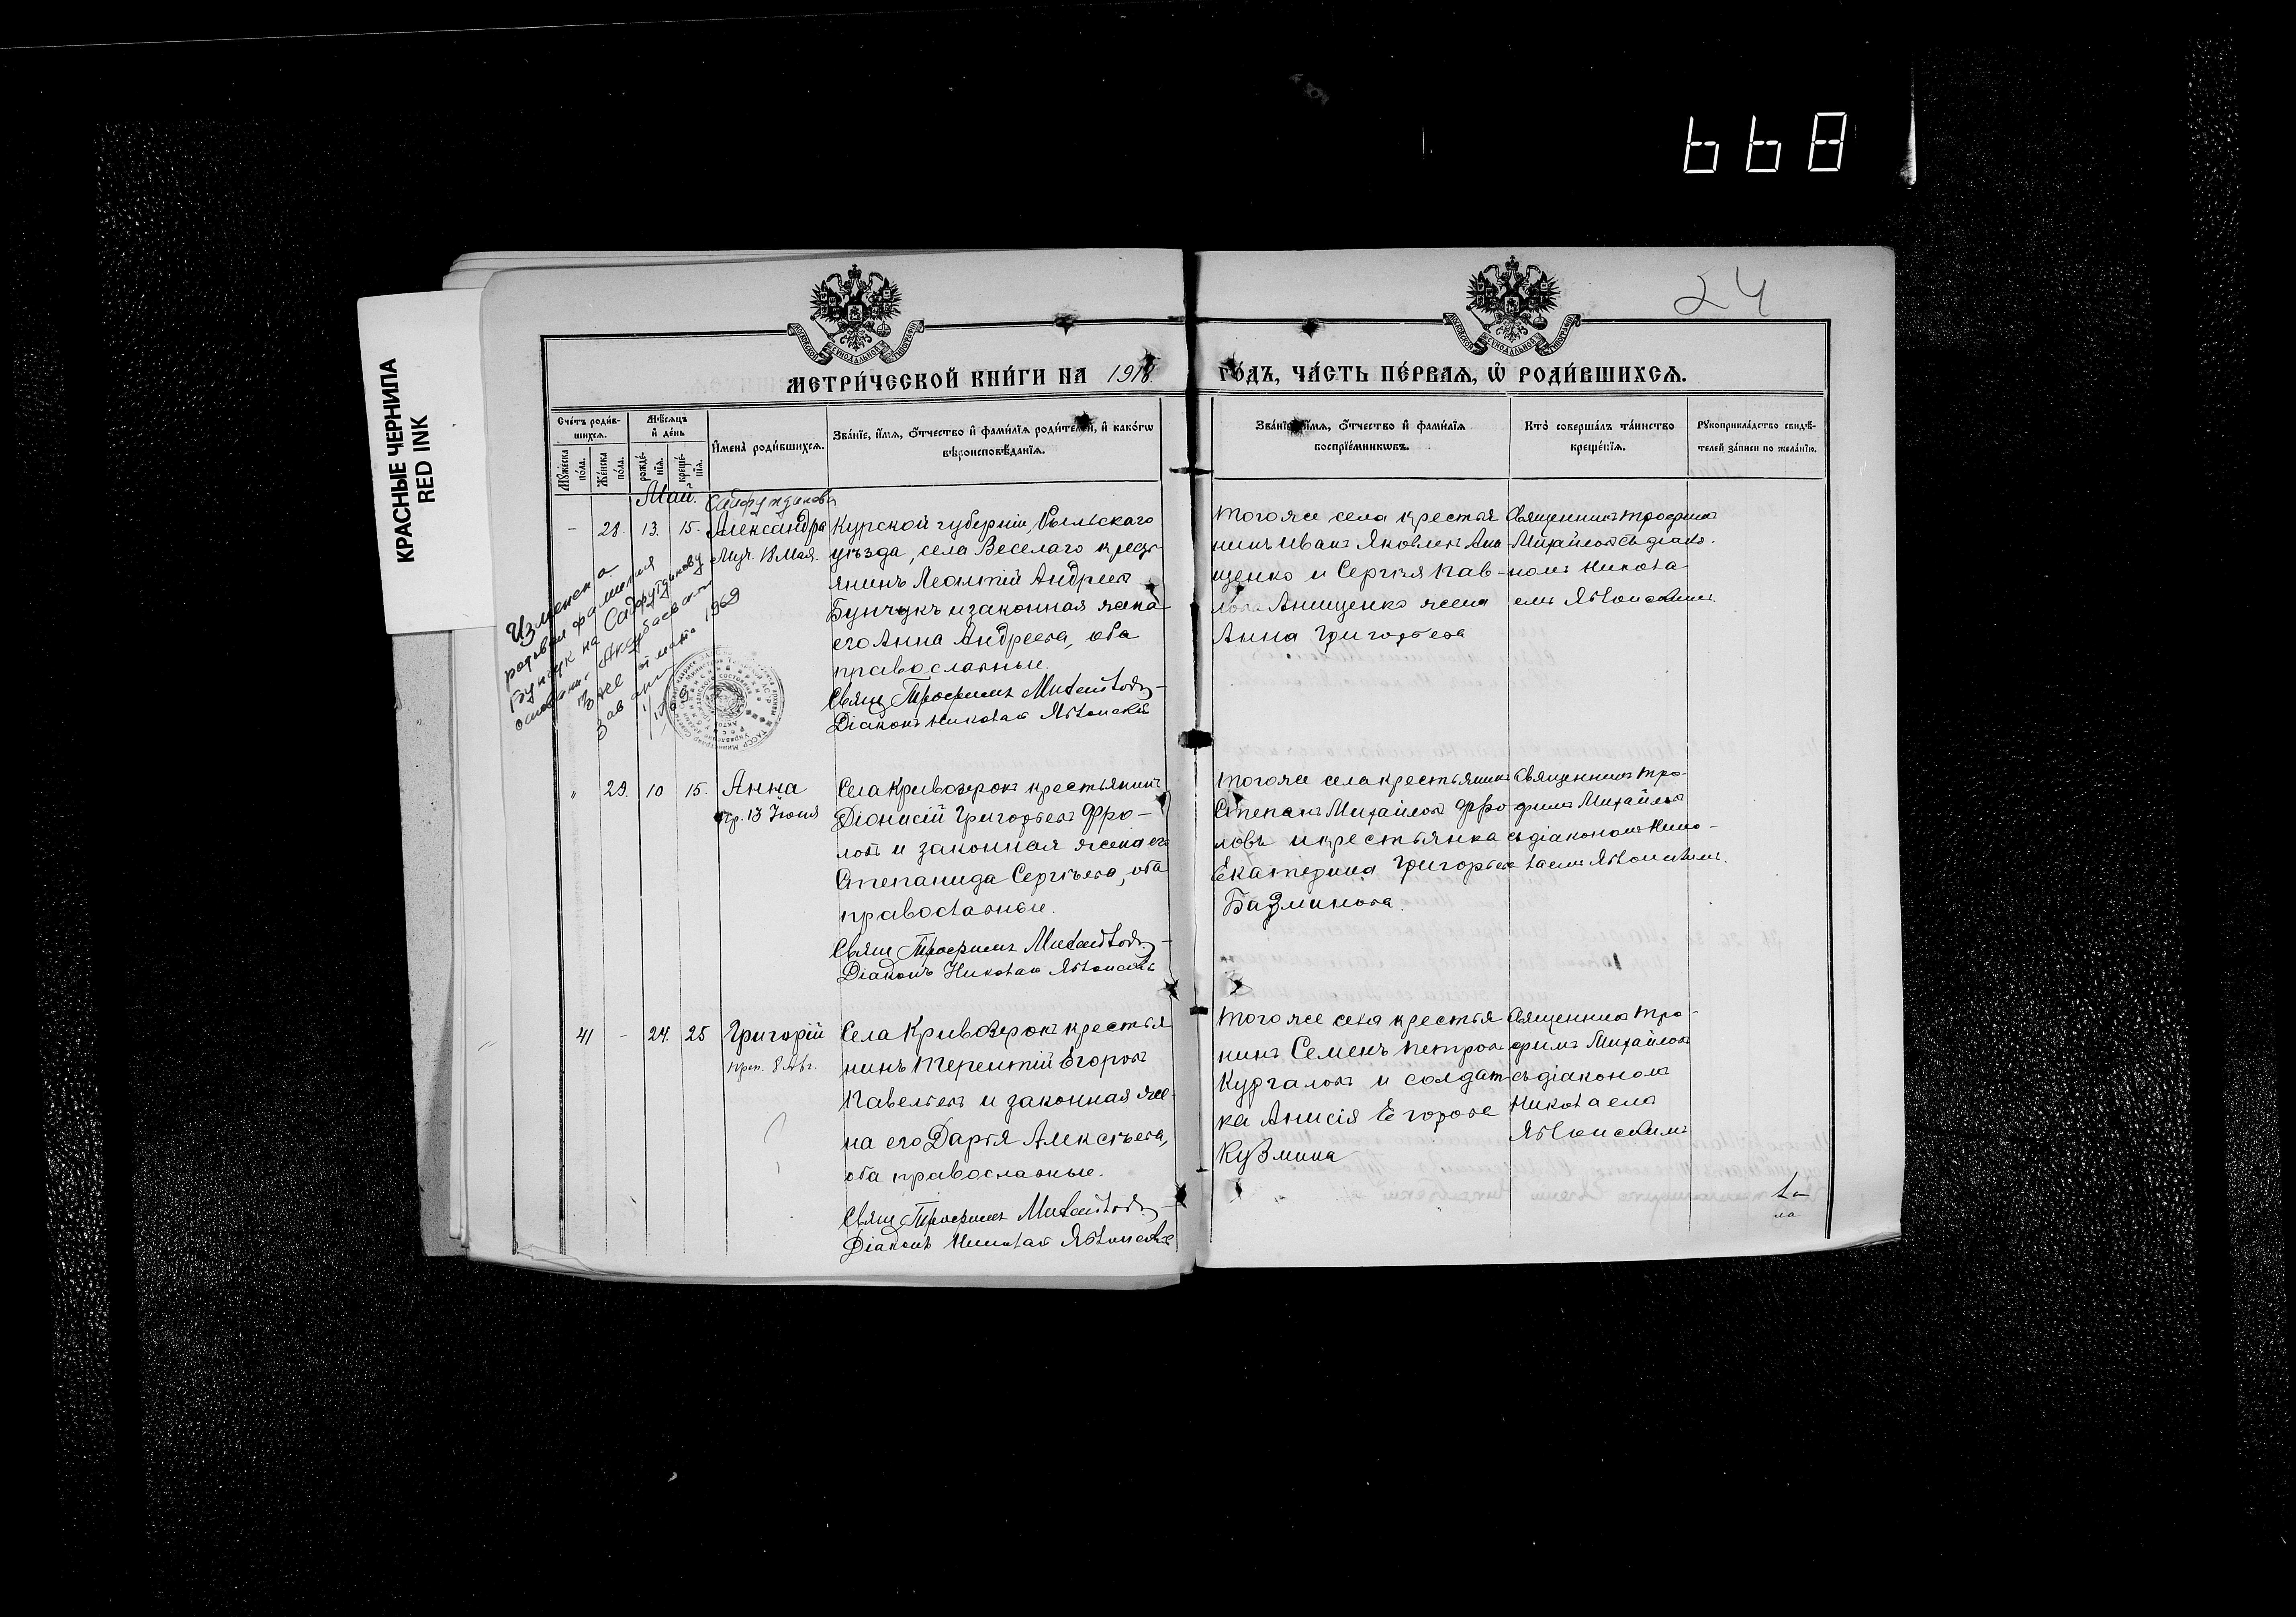 668
24
КРАСНЫЕ ЧЕРНИЛА
RED INK
МЕТРИ́ЧЕСКОЙ КНИ́ГИ НА 1918
ГО́ДЪ, ЧА́СТЬ ПЕ́РВАѦ, Ѽ РОДИ́ВШИХСѦ.
Сче́тъ роди́в-
шихсѧ.
Мѣ́сѧцъ
и де́нь
Мꙋ́жеска
по́ла.
Же́нска
по́ла.
рожде́-
нїѧ.
креще́-
нїѧ.
Имена̀ роди́вшихсѧ.
Зва́нїе, и́мѧ, ѻ́тчество и фами́лїѧ роди́телей, и како́гѡ
вѣроисповѣ́данїѧ.
Зва́нїе, и́мѧ, ѻ́тчество и фами́лїѧ
воспрїе́мникѡвъ.
Кто̀ соверша́лъ та́инство
креще́нїѧ.
Рꙋкоприкла́дство свидѣ́-
телей за́писи по жела́нїю.
Май.
- 28. 13. 15. Александра
Мая.
Курской губерніи, Рыльскаго
уѣзда, села Веселаго крестъ-
янинъ Леонтій Андреевъ
Бунчукъ и законная жена
его Анна Андреева, оба
православные.
Свящ Трофимъ Михайловъ
Діаконъ Николай Яблонскій
Тогоже села крестья
нинъ Иванъ Яковлевъ Ани
щенко и Сергѣя Пав-
лова Анищенко жена
Анна Григорьева
Священникъ Трофимъ
Михайловъ съ діако-
номъ Никола
емъ Яблонскимъ
Изменена
родовая фамилия
Бунчук на
1969
" 29. 10 15. Анна
13 Іюня
Села Кривозерокъ крестьянинъ
Діонисій Григорьевъ Фро-
ловъ и законная жена его
Степанида Сергѣева, оба
православные.
Свящ Трофимъ Михайловъ
Діаконъ Николай Яблонскій
Тогоже села крестьянинъ
Степанъ Михайловъ Фро
ловъ и крестьянка
Екатерина Григорьева
Базминова.
Священникъ Тро-
фимъ Михайловъ
съ діакономъ Нико-
лаемъ Яблонскимъ.
41 - 24. 25 Григорій
8 Авг.
Села Кривозерокъ крестья
нинъ Терентій Егоровъ
Павельевъ и законная же-
на его Дарія Алексѣева,
оба православные.
Свящ Трофимъ Михайловъ
Діаконъ Николай Яблонскій
Тогоже села крестья
нинъ Семенъ Петровъ
Кургановъ и солдат-
ка Анисія Егорова
Кузмина
Священникъ Тро-
фимъ Михайловъ
съ діакономъ
Николаемъ
Яблонскимъ